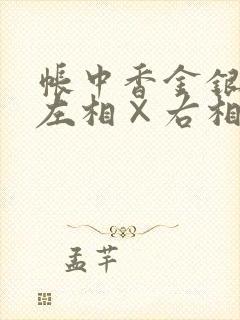 帐中香金银
左相×右相
孟芊